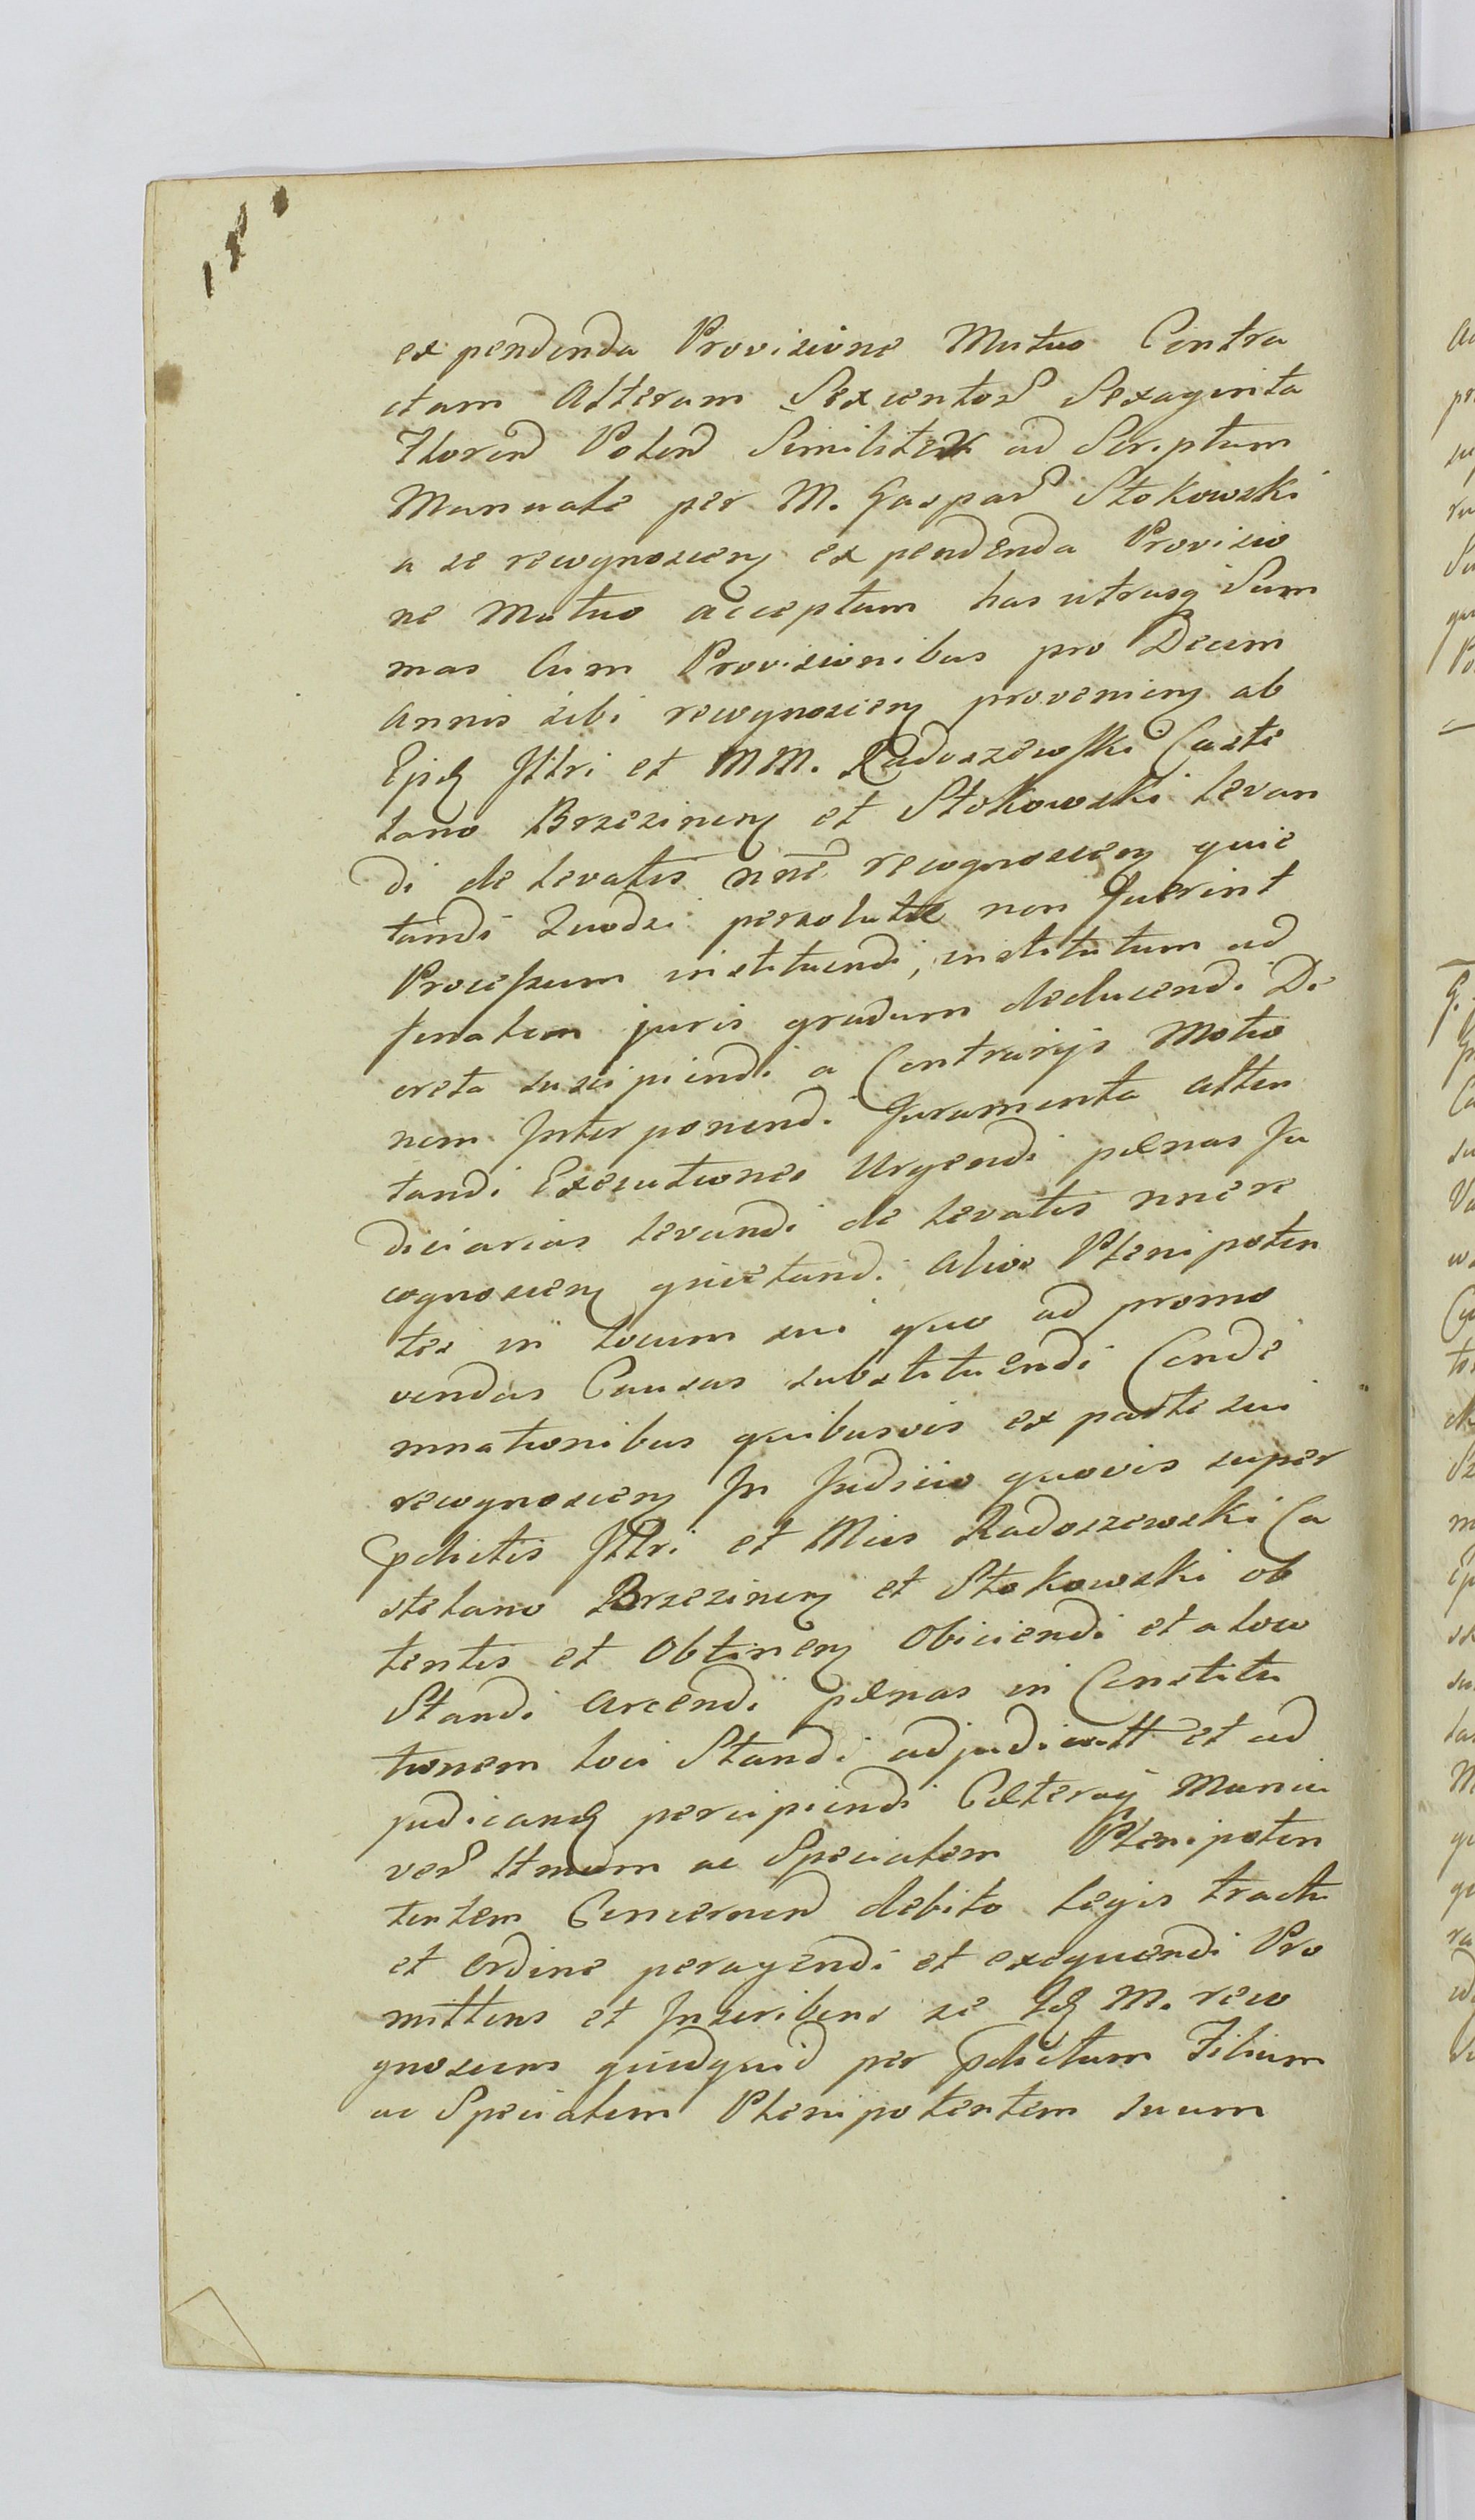 18
expendenda Provisione Mutuo Contra
ctam Alteram Sexcentor Sexaginta
Floren Polon Similiter ad Scriptum
Manuale per M. Gaspar Stokowski
a se recognoscen expendenda Provisio
ne Mutuo acceptam has utrasq Sum
mas Cum Provisionibus pro Decem
Annis sibi recognoscen provenien ab
Illri et MM. Radoszewski Caste
lano Brzezinen et Stokowski levan
di de levatis nne recognoscen quie
tandi Quodsi persolutæ non fuerint
Processum instituendi, institutum ad
finalem juris gradum deducendi De
creta suscipiendi a Contrarijs Motio
nem Interponendi Juramenta atten
tandi Executiones Urgendi pænas Ju
diciarias levandi de levatis nne re
cognoscen quietandi Alios Plenipoten
tes in locum sui quo ad promo
vendas Causas substituendi Conde
mnationibus quibusvis ex parte sui
recognoscen In Judicio quovis super
pdictis Illri et Mcis Radoszewski Ca
stelano Brzezinen et Stokowski ob
tentis et Obtinen Obiiciendi et a loco
Standi arcendi pænas in Constitu
tionem loci Standi adjudicatt et ad
judicand percipiendi Cæteraq Munia
ver ltmum ac Specialem Plenipoten
tentem Concernen debito legis tractu
et Ordine peragendi et exequendi Pro
mittens et Inscribens se M. reco
gnoscens quidquid per pdictum Filium
ac Specialem Plenipotentem suum